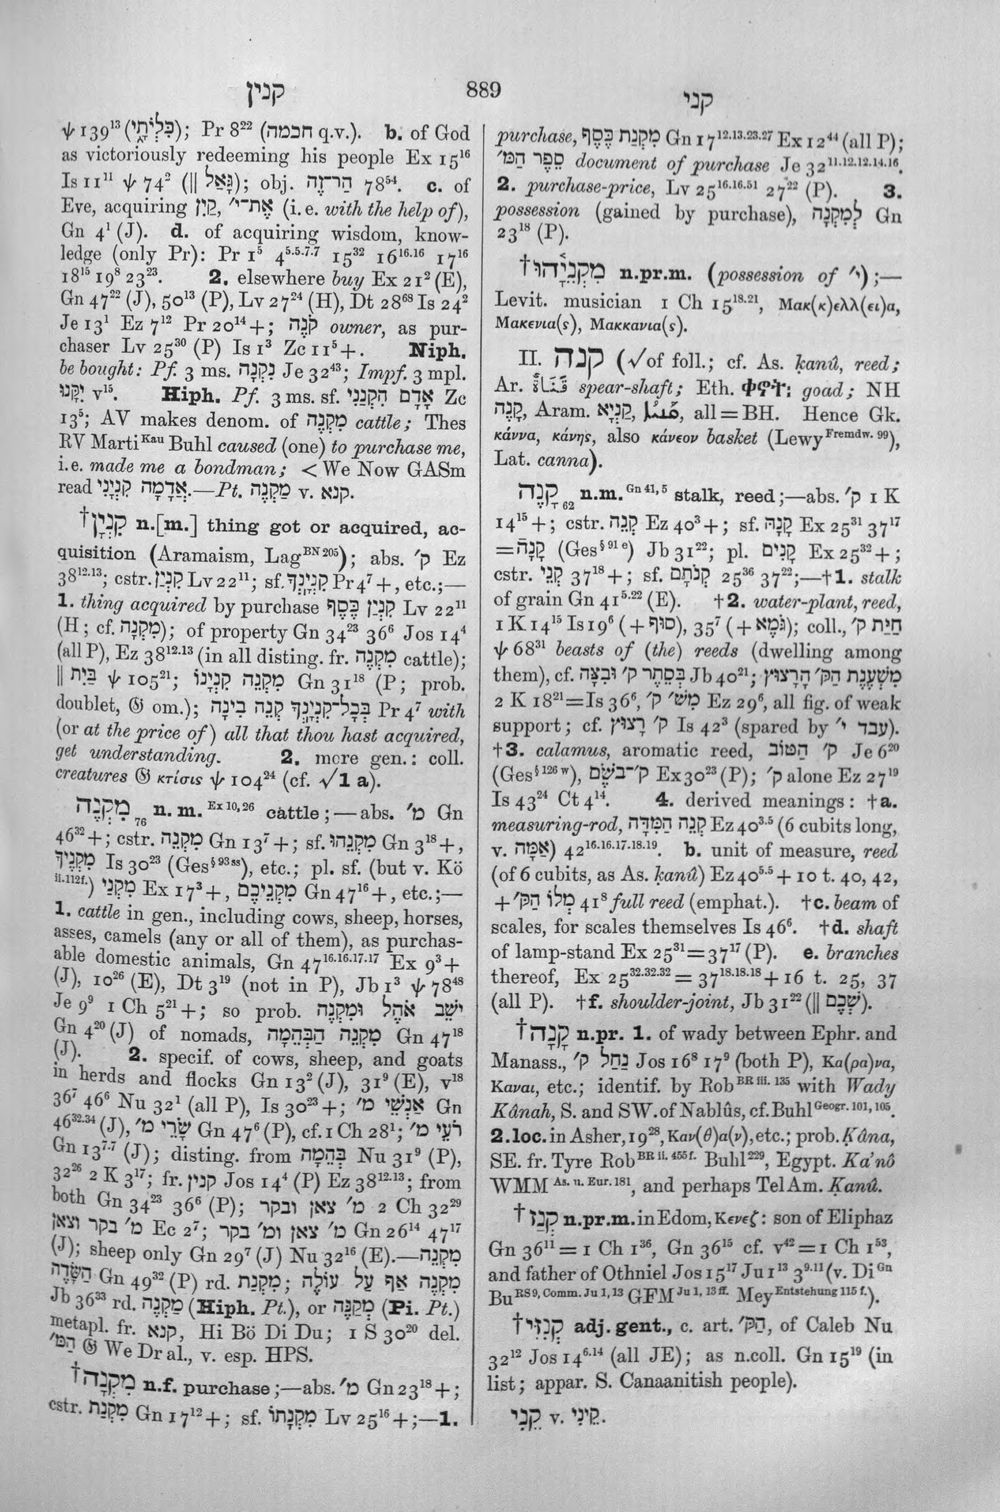 קנין
889
קני
ψ 139¹³ (כִּלְיֹתָי); Pr 8²² (חכמה q.v.). b. of God
as victoriously redeeming his people Ex 15¹⁶
Is 11¹¹ ψ 74² (|| גָּאַל); obj. הַר־זֶה 78⁵⁴. c. of
Eve, acquiring קַיִן, אֶת־י״ (i.e. with the help of),
Gn 4¹ (J). d. of acquiring wisdom, know-
ledge (only Pr): Pr 1⁵ 4⁵·⁵·⁷·⁷ 15³² 16¹⁶·¹⁶ 17¹⁶
18¹⁵ 19⁸ 23²³. 2. elsewhere buy Ex 21² (E),
Gn 47²² (J), 50¹³ (P), Lv 27²⁴ (H), Dt 28⁶⁸ Is 24²
Je 13¹ Ez 7¹² Pr 20¹⁴ +; קֹנֶה owner, as pur-
chaser Lv 25³⁰ (P) Is 1³ Zc 11⁵ +. Niph.
be bought: Pf. 3 ms. נִקְנָה Je 32⁴³; Impf. 3 mpl.
יִקָּנוּ v¹⁵. Hiph. Pf. 3 ms. sf. אָדָם הִקְנַנִי Zc
13⁵; AV makes denom. of מִקְנֶה cattle; Thes
RV Marti ᴷᵃᵘ Buhl caused (one) to purchase me,
i.e. made me a bondman; < We Now GASm
read אֲדָמָה קִנְיָנִי.—Pt. מַקְנֶה v. קנא.
†קִנְיָן n.[m.] thing got or acquired, ac-
quisition (Aramaism, Lag ᴮᴺ ²⁰⁵); abs. ק׳ Ez
38¹²·¹³; cstr. קִנְיַן Lv 22¹¹; sf. קִנְיָנֶךָ Pr 4⁷ +, etc.;—
1. thing acquired by purchase קִנְיַן כֶּסֶף Lv 22¹¹
(H; cf. מִקְנָה); of property Gn 34²³ 36⁶ Jos 14⁴
(all P), Ez 38¹²·¹³ (in all disting. fr. מִקְנֶה cattle);
|| בַּיִת ψ 105²¹; מִקְנֵה קִנְיָנוֹ Gn 31¹⁸ (P; prob.
doublet, 𝔊 om.); בְּכָל־קִנְיָנְךָ קְנֵה בִינָה Pr 4⁷ with
(or at the price of) all that thou hast acquired,
get understanding. 2. more gen.: coll.
creatures 𝔊 κτίσις ψ 104²⁴ (cf. √1 a).
מִקְנֶה ₇₆ n.m. ᴱˣ ¹⁰,²⁶ cattle;—abs. מ׳ Gn
46³² +; cstr. מִקְנֵה Gn 13⁷ +; sf. מִקְנֵהוּ Gn 3¹⁸ +,
מִקְנֶיךָ Is 30²³ (Ges § ⁹³ ˢˢ), etc.; pl. sf. (but v. Kö
ⁱⁱ·¹¹²ᶠ·) מִקְנַי Ex 17³ +, מִקְנֵיכֶם Gn 47¹⁶ +, etc.;—
1. cattle in gen., including cows, sheep, horses,
asses, camels (any or all of them), as purchas-
able domestic animals, Gn 47¹⁶·¹⁶·¹⁷·¹⁷ Ex 9³ +
(J), 10²⁶ (E), Dt 3¹⁹ (not in P), Jb 1³ ψ 78⁴⁸
Je 9⁹ 1 Ch 5²¹ +; so prob. ישֵׁב אֹהֶל וּמִקְנֶה
Gn 4²⁰ (J) of nomads, מִקְנֵה הַבְּהֵמָה Gn 47¹⁸
(J). 2. specif. of cows, sheep, and goats
in herds and flocks Gn 13² (J), 31⁹ (E), v¹⁸
36⁷ 46⁶ Nu 32¹ (all P), Is 30²³ +; אַנְשֵׁי מ׳ Gn
46³²·³⁴ (J), שָׂרֵי מ׳ Gn 47⁶ (P), cf. 1 Ch 28¹; רֹעֵי מ׳
Gn 13⁷·⁷ (J); disting. from בְּהֵמָה Nu 31⁹ (P),
32²⁶ 2 K 3¹⁷; fr. קנין Jos 14⁴ (P) Ez 38¹²·¹³; from
both Gn 34²³ 36⁶ (P); מ׳ צאן ובקר 2 Ch 32²⁹
מ׳ בקר וצאן Ec 2⁷; מ׳ צאן ומ׳ בקר Gn 26¹⁴ 47¹⁷
(J); sheep only Gn 29⁷ (J) Nu 32¹⁶ (E).—מִקְנֵה
הַשָּׂדֶה Gn 49³² (P) rd. מִקְנַת; מִקְנֶה אַף עַל עוֹלֶה
Jb 36³³ rd. מַקְנֶה (Hiph. Pt.), or מְקַנֶּה (Pi. Pt.)
metapl. fr. קנא, Hi Bö Di Du; 1 S 30²⁰ del.
הַמּ׳ 𝔊 We Dr al., v. esp. HPS.
†מִקְנָה n.f. purchase;—abs. מ׳ Gn 23¹⁸ +;
cstr. מִקְנַת Gn 17¹² +; sf. מִקְנָתוֹ Lv 25¹⁶ +;—1.
purchase, מִקְנַת כֶּסֶף Gn 17¹²·¹³·²³·²⁷ Ex 12⁴⁴ (all P);
סֵפֶר הַמּ׳ document of purchase Je 32¹¹·¹²·¹²·¹⁴·¹⁶.
2. purchase-price, Lv 25¹⁶·¹⁶·⁵¹ 27²² (P). 3.
possession (gained by purchase), לְמִקְנָה Gn
23¹⁸ (P).
†מִקְנֵיָהוּ n.pr.m. (possession of י״);—
Levit. musician 1 Ch 15¹⁸·²¹, Μακ(κ)ελλ(ει)α,
Μακενια(ς), Μακκανια(ς).
II. קנה (√of foll.; cf. As. ḳanû, reed;
Ar. قَنَاةٌ spear-shaft; Eth. ቀኖት: goad; NH
קָנֶה, Aram. קַנְיָא, ܩܰܢܝܳܐ, all = BH. Hence Gk.
κάννα, κάνης, also κάνεον basket (Lewy ᶠʳᵉᵐᵈʷ· ⁹⁹),
Lat. canna).
קָנֶה ₆₂ n.m. ᴳⁿ ⁴¹,⁵ stalk, reed;—abs. ק׳ 1 K
14¹⁵ +; cstr. קְנֵה Ez 40³ +; sf. קָנָהּ Ex 25³¹ 37¹⁷
= קָנֶה (Ges § ⁹¹ ᵉ) Jb 31²²; pl. קָנִים Ex 25³² +;
cstr. קְנֵי 37¹⁸ +; sf. קְנֹתָם 25³⁶ 37²²;—†1. stalk
of grain Gn 41⁵·²² (E). †2. water-plant, reed,
1 K 14¹⁵ Is 19⁶ (+ סוּף), 35⁷ (+ גֹּמֶא); coll., חַיַּת ק׳
ψ 68³¹ beasts of (the) reeds (dwelling among
them), cf. בְּסֵתֶר ק׳ וּבִצָּה Jb 40²¹; מִשְׁעֶנֶת הַקּ׳ הָרָצוּץ
2 K 18²¹ = Is 36⁶, מִשׁ׳ ק׳ Ez 29⁶, all fig. of weak
support; cf. ק׳ רָצוּץ Is 42³ (spared by עבד י׳).
†3. calamus, aromatic reed, ק׳ הַטּוֹב Je 6²⁰
(Ges § ¹²⁶ ʷ), ק׳־בֹשֶׂם Ex 30²³ (P); ק׳ alone Ez 27¹⁹
Is 43²⁴ Ct 4¹⁴. 4. derived meanings: †a.
measuring-rod, קְנֵה הַמִּדָּה Ez 40³·⁵ (6 cubits long,
v. אַמָּה) 42¹⁶·¹⁶·¹⁷·¹⁸·¹⁹. b. unit of measure, reed
(of 6 cubits, as As. ḳanû) Ez 40⁵·⁵ + 10 t. 40, 42,
+ מְלוֹ הַקּ׳ 41⁸ full reed (emphat.). †c. beam of
scales, for scales themselves Is 46⁶. †d. shaft
of lamp-stand Ex 25³¹ = 37¹⁷ (P). e. branches
thereof, Ex 25³²·³²·³² = 37¹⁸·¹⁸·¹⁸ + 16 t. 25, 37
(all P). †f. shoulder-joint, Jb 31²² (|| שְׁכֶם).
†קָנָה n.pr. 1. of wady between Ephr. and
Manass., נַחַל ק׳ Jos 16⁸ 17⁹ (both P), Κα(ρα)να,
Καναι, etc.; identif. by Rob ᴮᴿ ⁱⁱⁱ· ¹³⁵ with Wady
Kânah, S. and SW. of Nablûs, cf. Buhl ᴳᵉᵒᵍʳ· ¹⁰¹, ¹⁰⁵.
2. loc. in Asher, 19²⁸, Καν(θ)α(ν), etc.; prob. Ḳâna,
SE. fr. Tyre Rob ᴮᴿ ⁱⁱ· ⁴⁵⁵ ᶠ· Buhl ²²⁹, Egypt. Ka'nô
WMM ᴬˢ· ᵘ· ᴱᵘʳ· ¹⁸¹, and perhaps Tel Am. Ḳanû.
†קְנַז n.pr.m. in Edom, Κενεζ: son of Eliphaz
Gn 36¹¹ = 1 Ch 1³⁶, Gn 36¹⁵ cf. v⁴² = 1 Ch 1⁵³,
and father of Othniel Jos 15¹⁷ Ju 1¹³ 3⁹·¹¹ (v. Di ᴳⁿ
Bu ᴿˢ ⁹, ᶜᵒᵐᵐ· ᴶᵘ ¹,¹³ GFM ᴶᵘ ¹, ¹³ ᶠᶠ· Mey ᴱⁿᵗˢᵗᵉʰᵘⁿᵍ ¹¹⁵ ᶠ·).
†קְנִזִּי adj.gent., c. art. הַקּ׳, of Caleb Nu
32¹² Jos 14⁶·¹⁴ (all JE); as n.coll. Gn 15¹⁹ (in
list; appar. S. Canaanitish people).
קֵנִי v. קֵינִי.